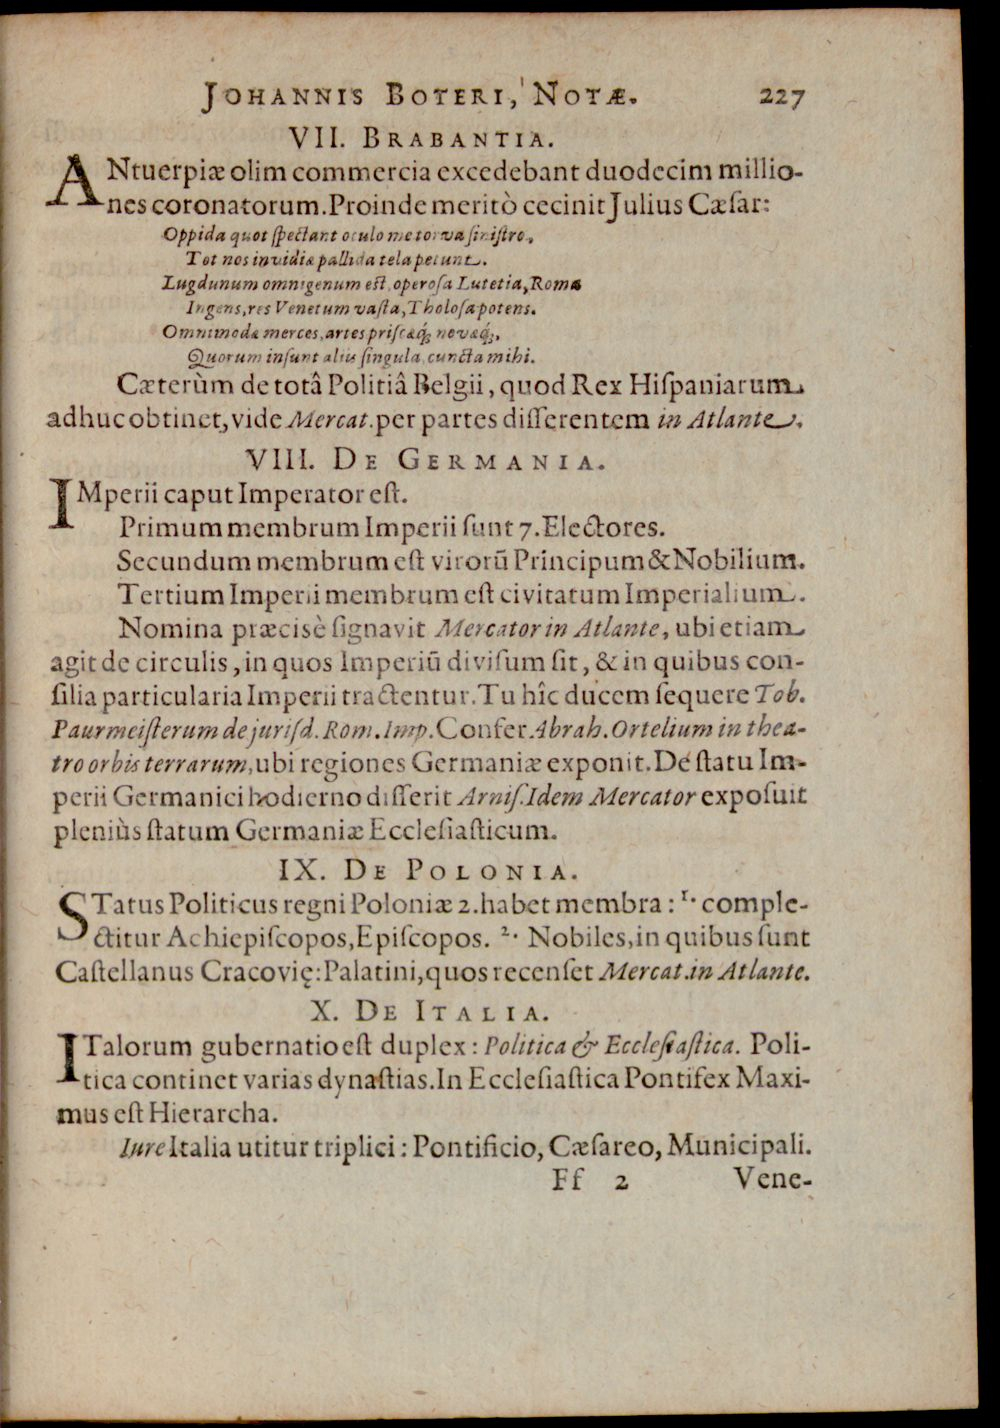 JOHANNIS BOTERI, NOTÆ. 227
VII. BRABANTIA.
ANtuerpiæ olim commercia excedebant duodecim millio-
nes coronatorum. Proinde meritò cecinit Julius Cæſar:
Oppida quot ſpectant oculo me torva ſiniſtro,
Tot nos invidiæ pallida tela petunt.
Lugdunum omnigenum eſt, operoſa Lutetia, Roma
Ingens, res Venetum vaſta, Tholoſa potens.
Omnimodæ merces, artes priſcæq́; novæq́;,
Quorum inſunt aliis ſingula, cuncta mihi.
Cæterùm de totâ Politiâ Belgii, quod Rex Hiſpaniarum
adhuc obtinet, vide Mercat. per partes differentem in Atlante.
VIII. DE GERMANIA.
IMperii caput Imperator eſt.
Primum membrum Imperii ſunt 7. Electores.
Secundum membrum eſt virorũ Principum & Nobilium.
Tertium Imperii membrum eſt civitatum Imperialium.
Nomina præcisè ſignavit Mercator in Atlante, ubi etiam
agit de circulis, in quos Imperiũ diviſum ſit, & in quibus con-
ſilia particularia Imperii tractentur. Tu hîc ducem ſequere Tob.
Paurmeiſterum de juriſd. Rom. Imp. Confer Abrah. Ortelium in thea-
tro orbis terrarum, ubi regiones Germaniæ exponit. De ſtatu Im-
perii Germanici hodierno differit Arniſ. Idem Mercator expoſuit
pleniùs ſtatum Germaniæ Eccleſiaſticum.
IX. DE POLONIA.
STatus Politicus regni Poloniæ 2. habet membra: 1. comple-
ctitur Achiepiſcopos, Epiſcopos. 2. Nobiles, in quibus ſunt
Caſtellanus Cracovię: Palatini, quos recenſet Mercat. in Atlante.
X. DE ITALIA.
ITalorum gubernatio eſt duplex: Politica & Eccleſiaſtica. Poli-
tica continet varias dynaſtias. In Eccleſiaſtica Pontifex Maxi-
mus eſt Hierarcha.
Iure Italia utitur triplici: Pontificio, Cæſareo, Municipali.
Ff 2 Vene-